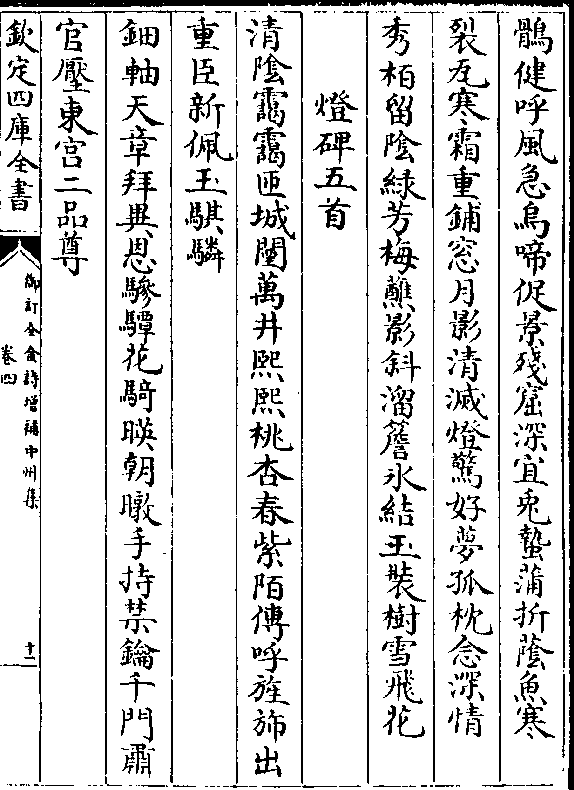 鶻健呼風急烏啼促景殘窟深宜兎蟄蒲折蔭魚寒
裂瓦寒霜重鋪窓月影清滅燈驚好夢孤枕念深情
秀栢留陰緑芳梅蘸影斜溜簷氷結玉裝樹雪飛花
燈碑五首
清陰靄靄匝城闉萬井熙熙桃杏春紫陌傳呼旌斾出
重臣新佩玉騏驎
鈿軸天章拜異恩驂驔花騎暎朝暾手持禁鑰千門肅
官壓東宫二品尊
欽定四庫全書
御訂全金詩增補中州集
卷四
十二